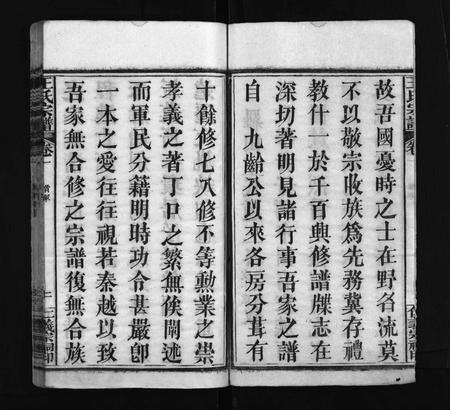 故吾國憂時之士在野名流莫
不以敬宗收族爲先務冀存禮
教什一於千百興修譜牒志在
深切著明見諸行事吾家之譜
自 九齡公以來各房分葺有
王氏宗譜
卷一
十餘修七八修不等勳業之崇
孝義之著丁口之繁無俟闡述
而軍民分籍明時功令甚嚴卽
一本之愛往往視若秦越以致
吾家無合修之宗譜復無合族